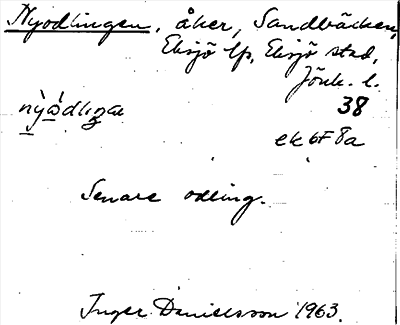 Nyodlingen, åker, Sandbäcken,
Eksjö lfs, Eksjö stad,
Jönk. l.
38
ek 6F 8a
Senare odling.
Inger Danielsson 1963.